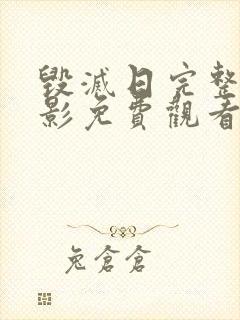 毀滅日完整
影免費觀看
兔倉倉